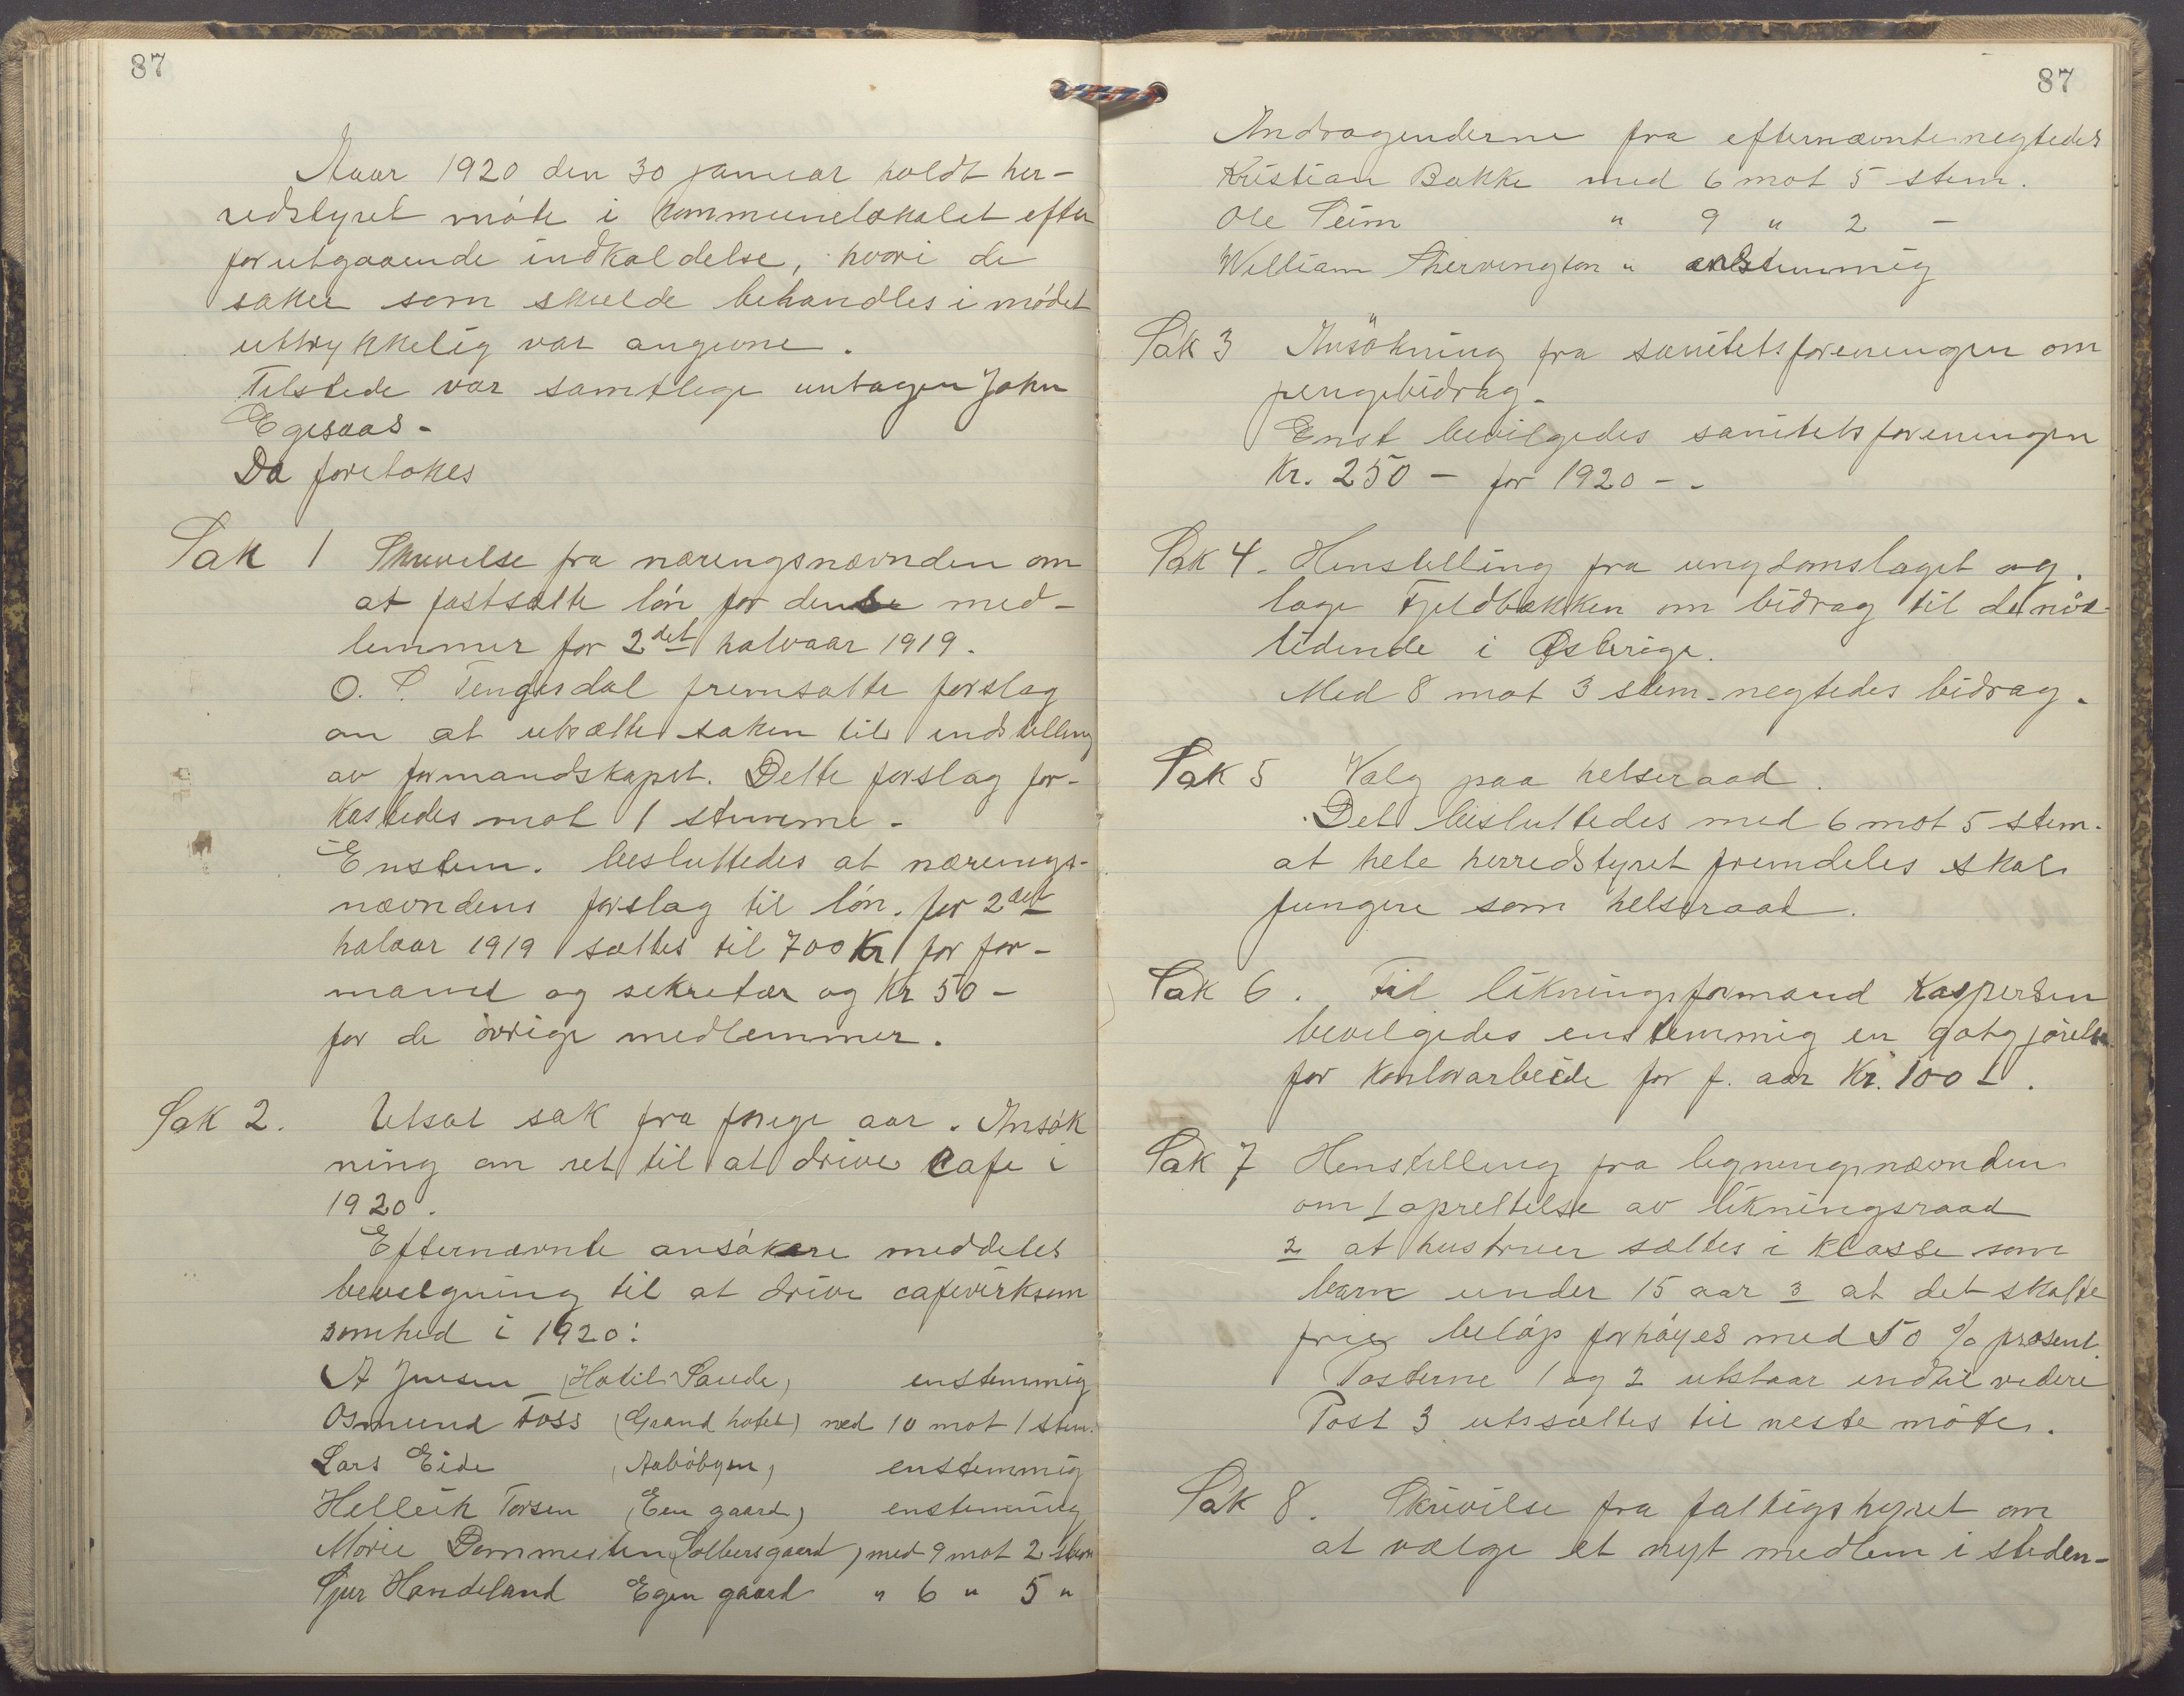 87
Aaar 1920 den 30 januar holdt her-
redstyret möte i kommunelokalet efter
forutgaaende indkaldelse, hvori de
saker som skulde behandles i mödet
uttrykkelig var angivne.
Tilstede var samtlige untagen John
Egesaas-
Da foretokes
Sak 1 Skrivelse fra næringsnævnden om
at fastsætte lön for dens med-
lemmer for 2det halvaar 1919.
O. S. Tengesdal fremsatte forslag
om at utsætte saken til indstilling
av formandskapet. Dette forslag for-
kastedes mot 1 stemme-
Enstem. besluttedes at nærings-
nævndens forslag til lön. for 2det
halaar 1919 sættes til 700 Kr for for-
mand og sekretær og Kr 50-
for de övrige medlemmer.
Sak 2. Utsat sak fra forige aar. Ansök
ning om ret til at drive Cafe i
1920.
Efternævnte ansökere meddeles
bevilgning til at drive cafevirksom
somhed i 1920:
A Jensen (Hotel Sauda) enstemmig
Osmund Foss (Grand hotel) med 10 mot 1 stem.
Lars Eide (Aaböbyen) enstemmig
Helleik Torsen (Een gaard) enstemmig
Marie Dommesten (Solbersgaard) med 9 mot 2 stem
Sjur Handeland Egen gaard " 6 " 5 "
87
Andragenderne fra efternævnte negtedes
Kristian Bakke med 6 mot 5 stem.
Ole Seim " 9 " 2 -
William Shervington " enstemmig
Sak 3 Ansökning fra sanitetsforeningen om
pengebidrag-
Enst bevilgedes sanitetsforeningen
Kr. 250 - for 1920 --
Sak 4- Henstilling fra ungdomslaget og.
loge Fjeldbækken om bidrag til de nöd-
lidende i Østerige.
Med 8 mot 3 stem- negtedes bidrag-
Sak 5 Valg paa helseraad.
Det besluttedes med 6 mot 5 stem-
at hele herredstyret fremdeles skal
fungere som helseraad.
Sak 6. Til likningsformand Kaspersen
bevilgedes enstemmig en gotgjörelse
for kontorarbeide for f. aar Kr. 100-.
Sak 7 Henstilling fra ligningsnævnden
om 1 oprettelse av likningsraad
2 at hustruer sættes i klasse som
barn under 15 aar 3 at det skatte
frie belöp forhöyes med 50 % prosent.
Posterne 1 og 2 utstaar indtil videre
Post 3 utssættes til neste möte.
Sak 8. Skrivelse fra fattigstyret om
at vælge et nyt medlem i steden-